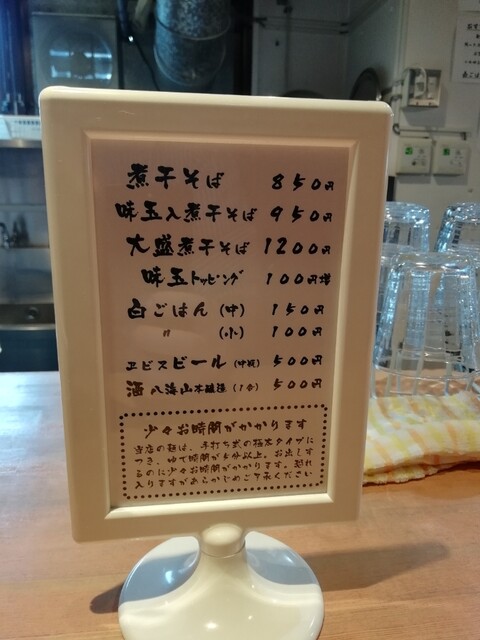 煮干そば 850円
味玉入煮干そば 950円
大盛煮干そば 1200円
味玉トッピング 100円増
白ごはん (中) 150円
〃 (小) 100円
ヱビスビール (中瓶) 500円
酒 八海山本醸造 (1合) 500円
少々お時間がかかります
当店の麺は、手打ち式の極太タイプに
つき、ゆで時間が6分以上。お出しす
るのに少々お時間がかかります。恐れ
入りますがあらかじめご了承ください